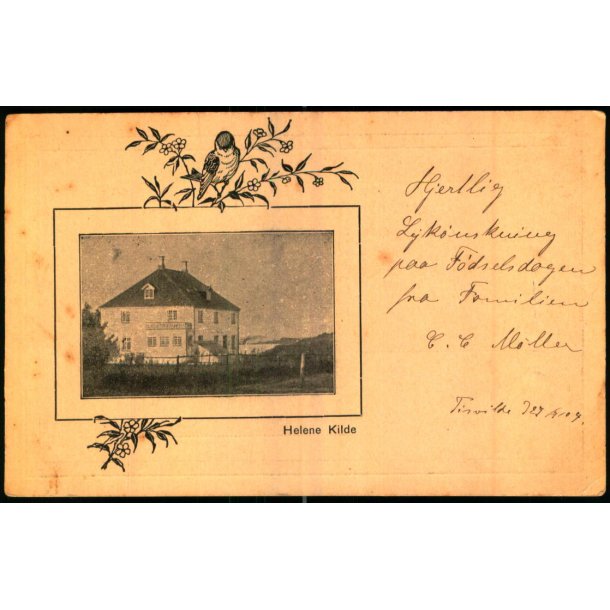 Hjertlig
Lykönskning
paa Födselsdagen
fra Familien
C. C Möller
Tisvilde
Helene Kilde